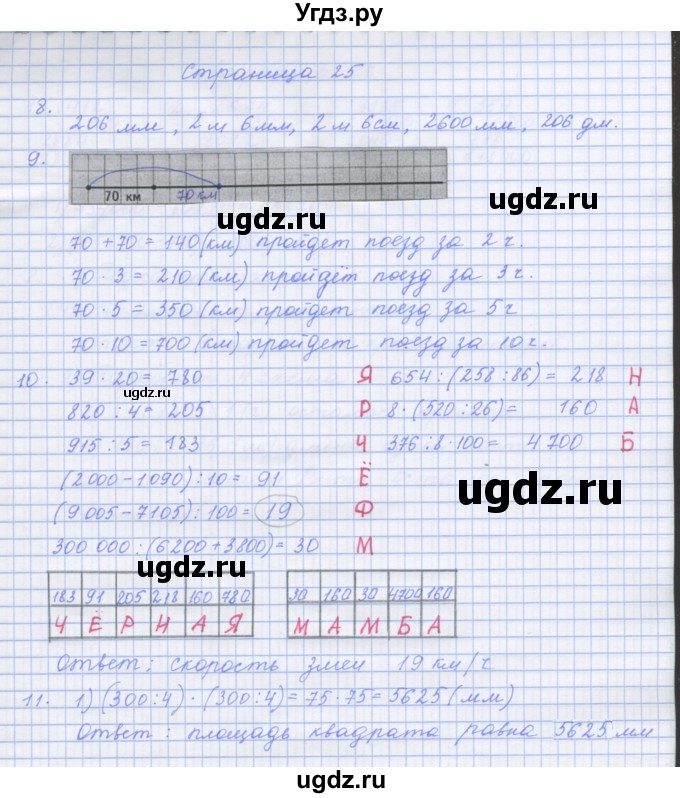 Угдз.ру
Страница 25
8.
206 мм, 2 м 6 мм, 2 м 6 см, 2600 мм, 206 дм.
9.
70 км 70 км
ugdz.ru
ugdz.ru
70 + 70 = 140 (км) пройдет поезд за 2 ч.
70 · 3 = 210 (км) пройдёт поезд за 3 ч.
70 · 5 = 350 (км) пройдет поезд за 5 ч
70 · 10 = 700 (км) пройдет поезд за 10 ч.
10. 39 · 20 = 780 Я 654 : (258 : 86) = 218 Н
ugdz.ru
820 : 4 = 205 Р 8 · (520 : 26) = 160 А
915 : 5 = 183 Ч 376 : 8 · 100 = 4700 Б
(2000 - 1090) : 10 = 91 Ё
ugdz.ru
(9005 - 7105) : 100 = 19 Ф
300 000 : (6200 + 3800) = 30 М
ugdz.ru
183 91 205 218 160 780 30 160 30 4700 160
Ч Ё Р Н А Я М А М Б А
Ответ: скорость змеи 19 км/ч
11. 1) (300 : 4) · (300 : 4) = 75 · 75 = 5625 (мм)
Ответ: площадь квадрата равна 5625 мм
ugdz.ru